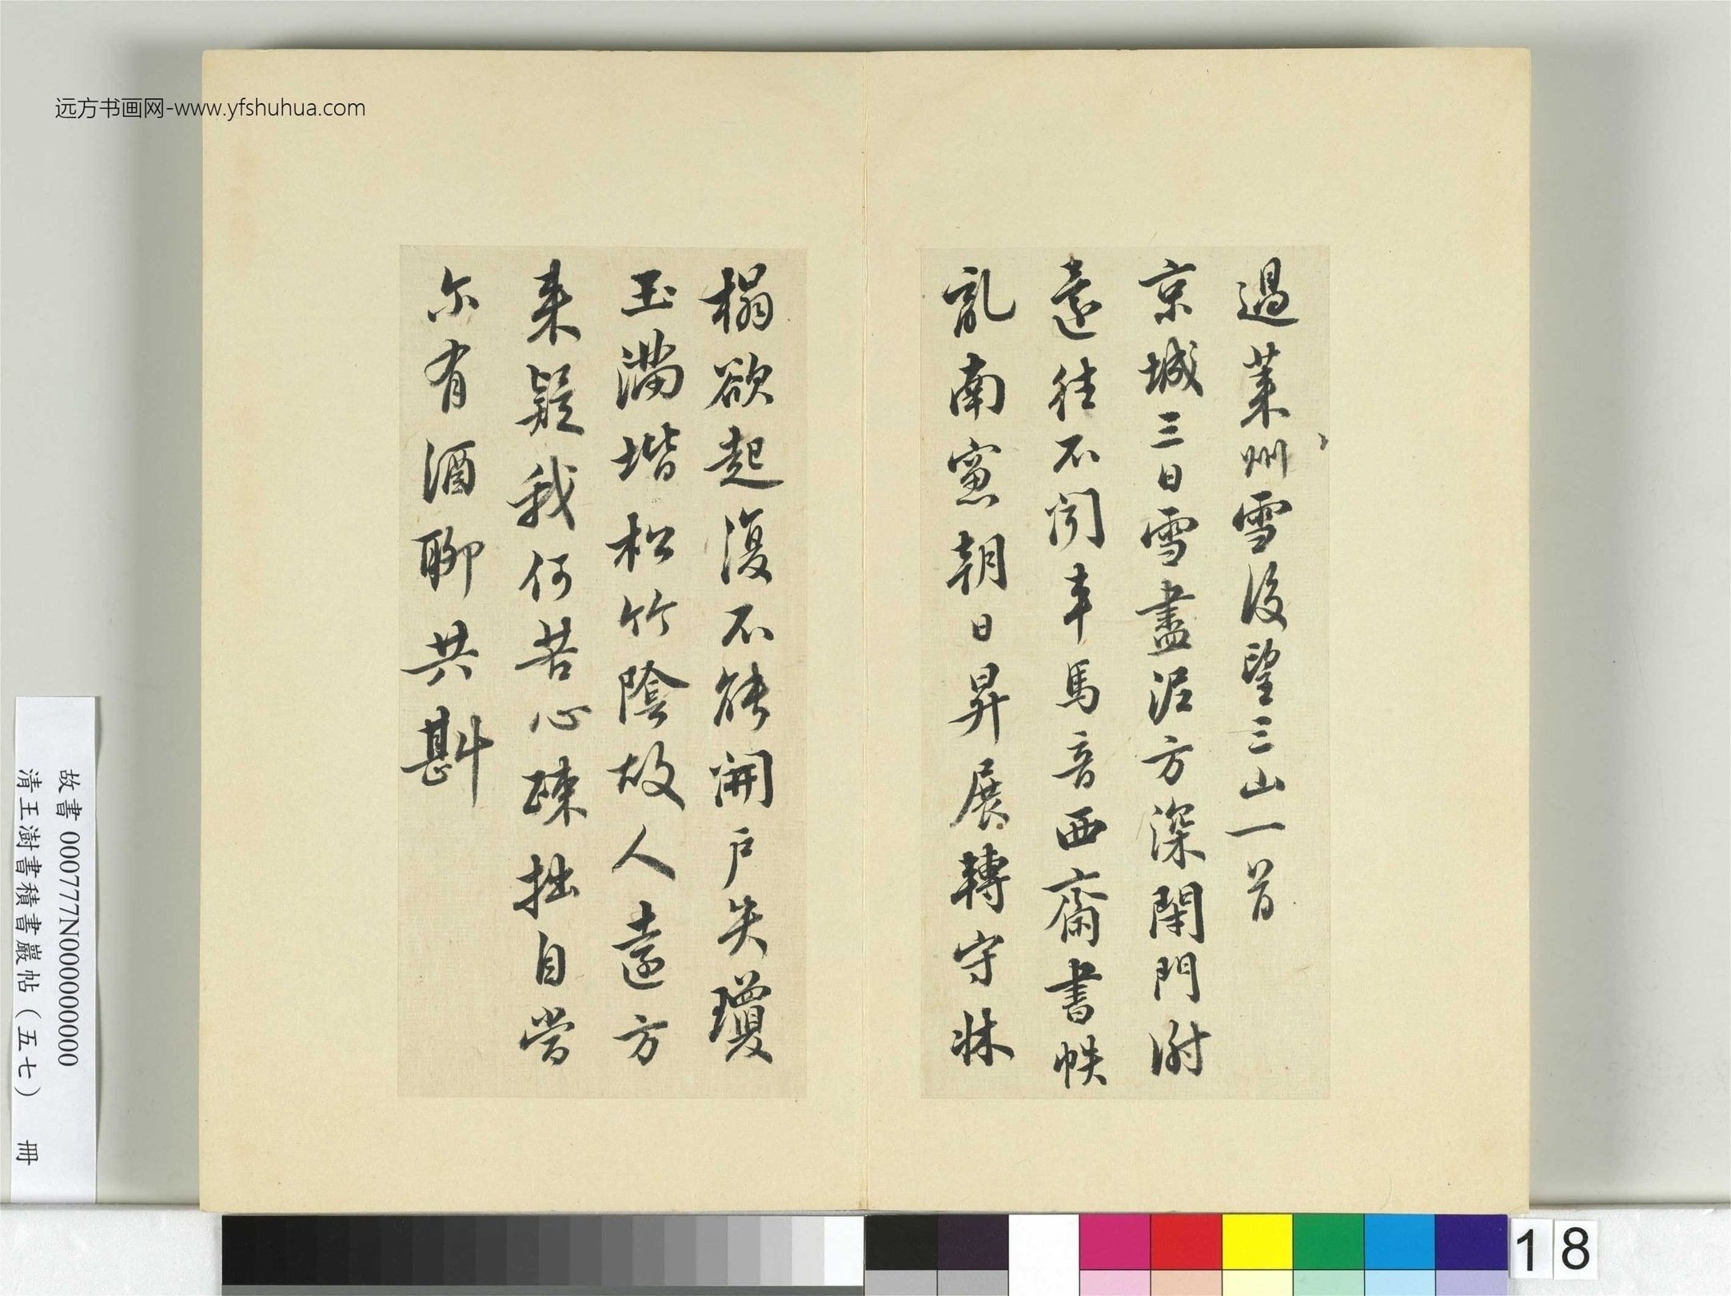 過萊州雪後望三山一首
京城三日雪盡泥方深閉門謝
還往不聞車馬音西齋書帙
亂南窻朝日昇展轉守牀
榻欲起復不能開戶失瓊
玉滿堦松竹陰故人遠方
来疑我何苦心疎拙自當
尔有酒聊共斟
远方书画网-www.yfshuhua.com
故書 000777N000000000
清王澍書積書巖帖（五七） 冊
18